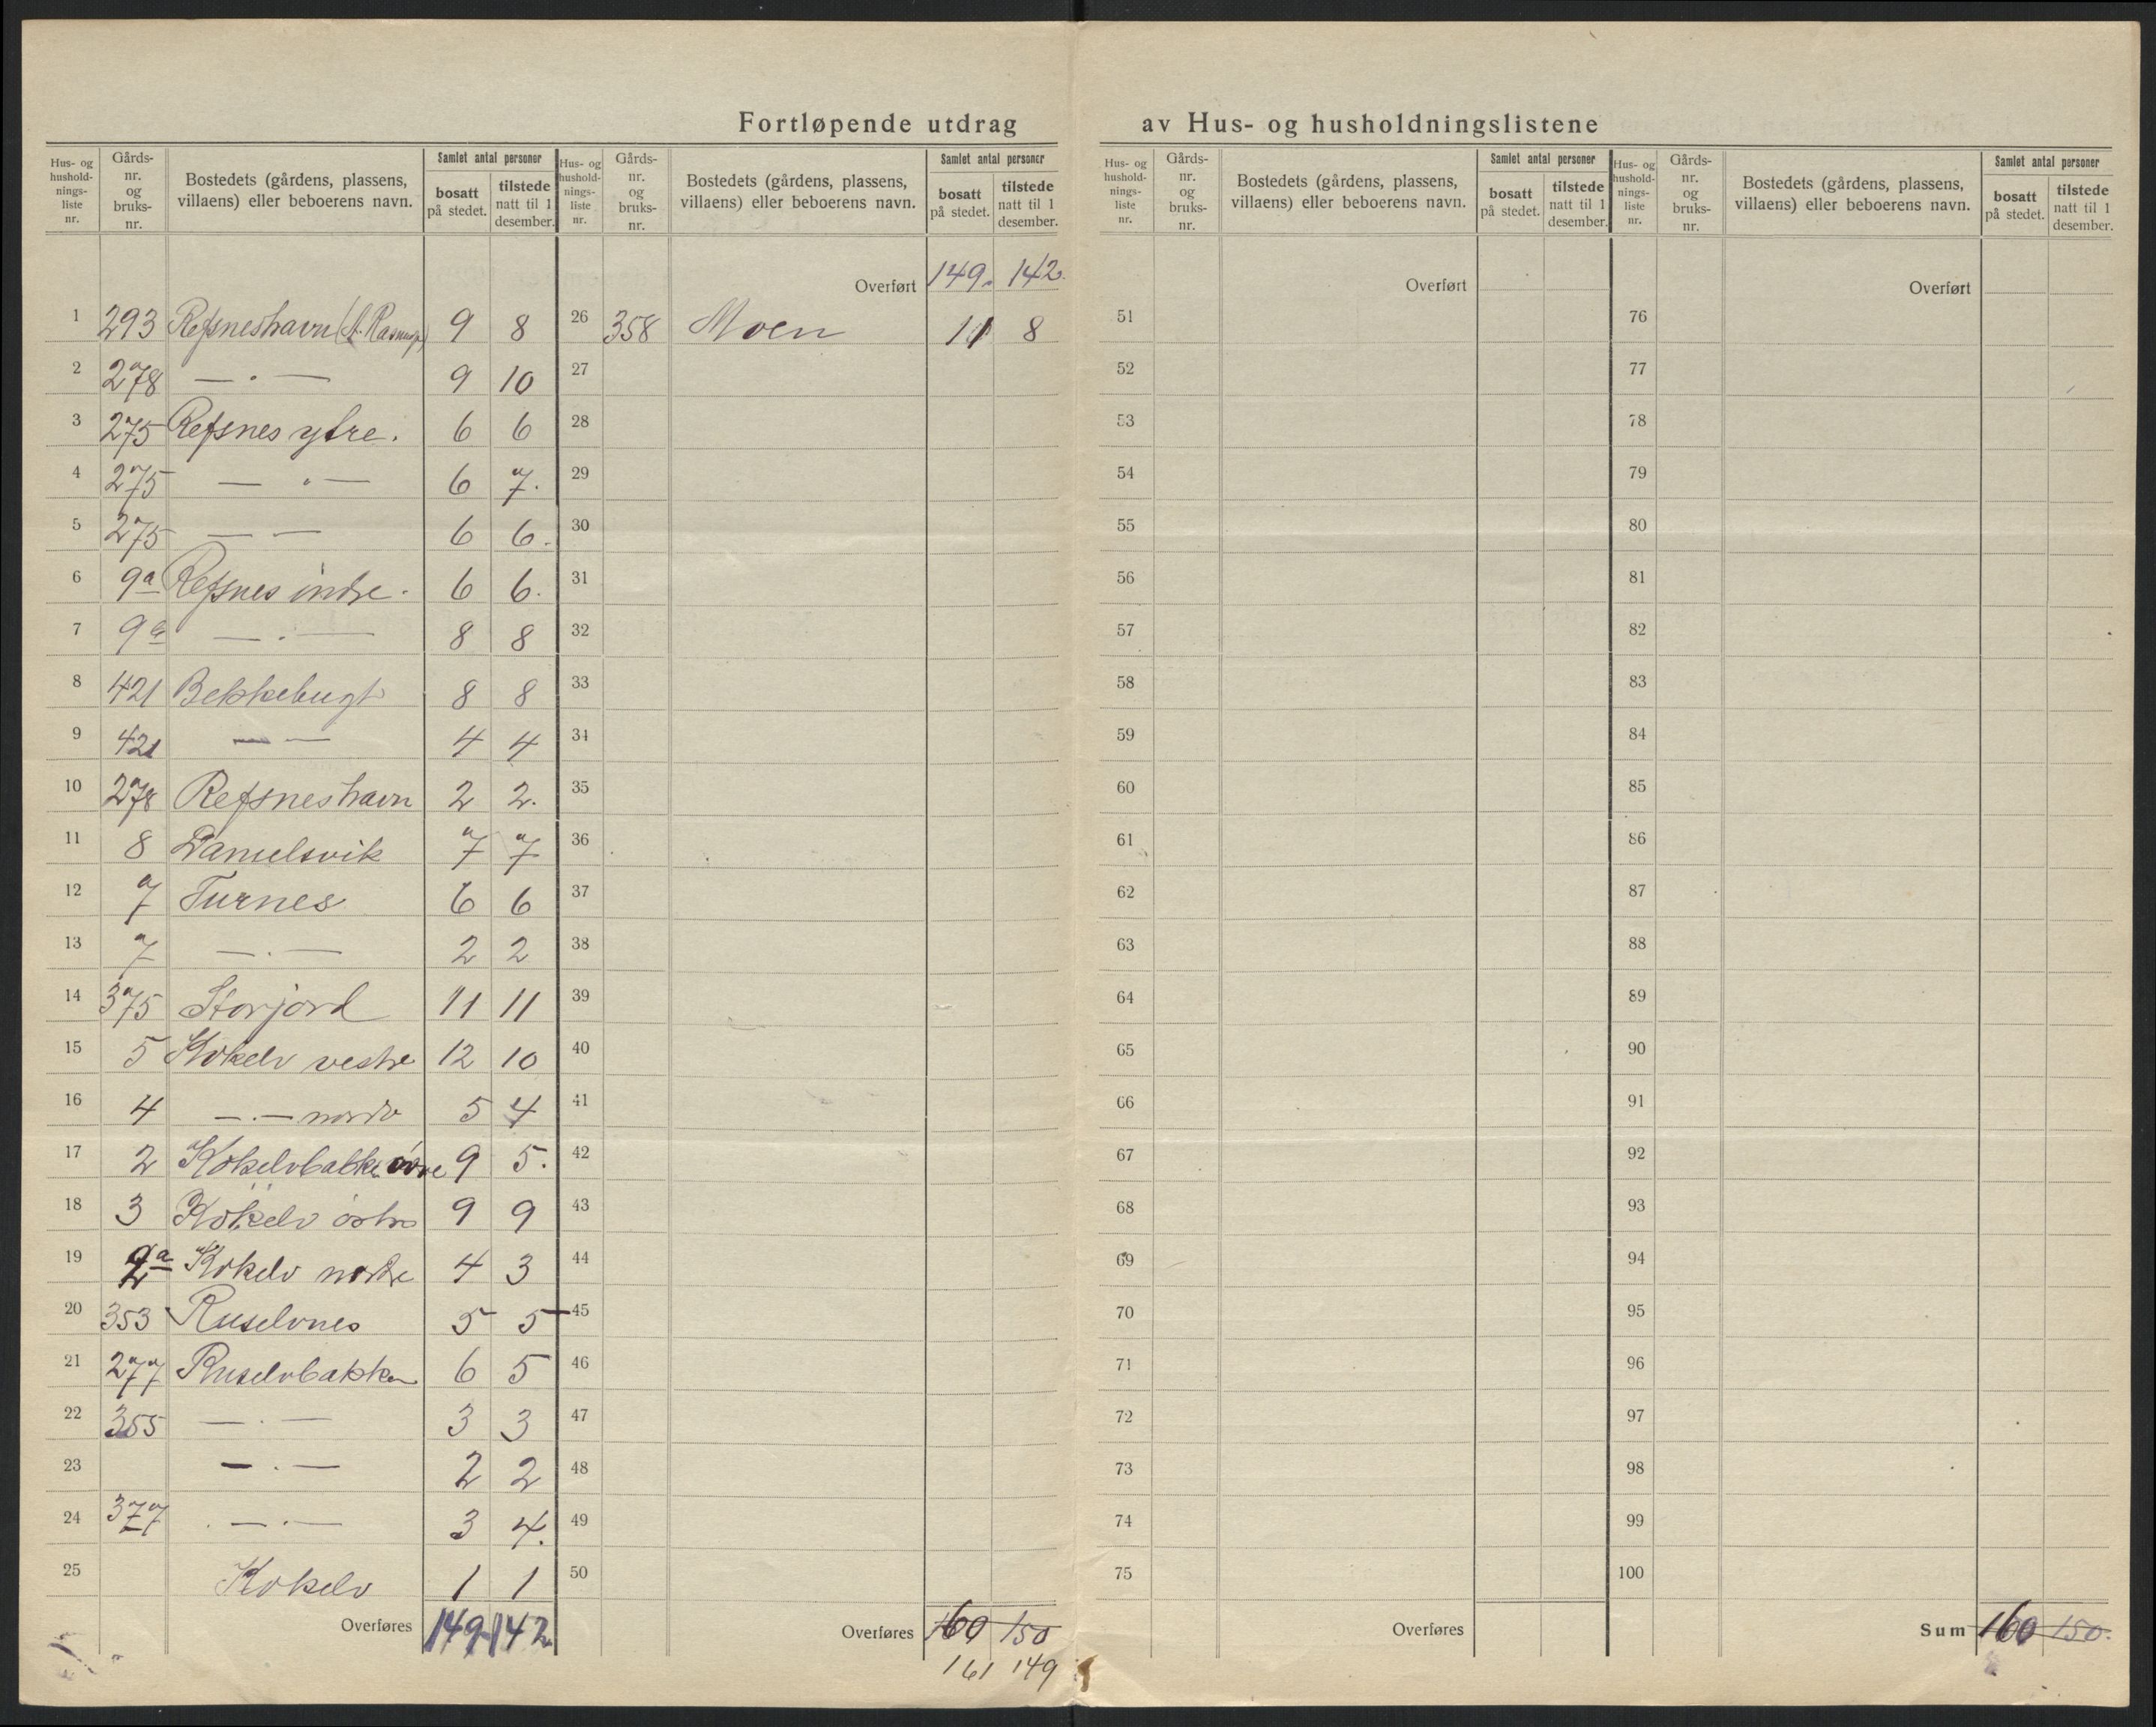 Fortløpende utdrag av Hus- og husholdningslistene
Hus- og hushold-nings-liste nr. | Gårds-nr. og bruks-nr. | Bostedets (gårdens, plassens, villaens) eller beboerens navn. | Samlet antal personer | bosatt på stedet. | tilstede natt til 1 desember.
1 293 Refsneshavn 9 8
2 278 — " — 9 10
3 275 Refsnes ytre. 6 6
4 275 — " — 6 7.
5 275 — — 6 6.
6 9a Refsnes indre. 6 6.
7 9a — . — 8 8
8 421 Bekkebugt 8 8
9 421 — — 4 4
10 278 Refsneshavn 2 2.
11 8 Danielsvik 7 7
12 7 Turnes 6 6
13 7 — . — 2 2
14 375 Storjord 11 11
15 5 Kokelv vestre 12 10
16 4 — . — nordr 5 4
17 2 Kokelvbakken övre 9 5.
18 3 Kokelv östre 9 9
19 2a Kokelv nordre 4 3
20 353 Ruselvnes 5 5
21 277 Ruselvbakken 6 5
22 355 — . — 3 3
23 — . — 2 2
24 377 . — . — 3 4.
25 Kokelv 1 1
Overføres 149 142
Hus- og hushold-nings-liste nr. | Gårds-nr. og bruks-nr. | Bostedets (gårdens, plassens, villaens) eller beboerens navn. | Samlet antal personer | bosatt på stedet. | tilstede natt til 1 desember.
Overført 149. 142.
26 358 Moen 11 8
27
28
29
30
31
32
33
34
35
36
37
38
39
40
41
42
43
44
45
46
47
48
49
50
Overføres 160 150
161 149
Hus- og hushold-nings-liste nr. | Gårds-nr. og bruks-nr. | Bostedets (gårdens, plassens, villaens) eller beboerens navn. | Samlet antal personer | bosatt på stedet. | tilstede natt til 1 desember.
Overført
51
52
53
54
55
56
57
58
59
60
61
62
63
64
65
66
67
68
69
70
71
72
73
74
75
Overføres
Hus- og hushold-nings-liste nr. | Gårds-nr. og bruks-nr. | Bostedets (gårdens, plassens, villaens) eller beboerens navn. | Samlet antal personer | bosatt på stedet. | tilstede natt til 1 desember.
Overført
76
77
78
79
80
81
82
83
84
85
86
87
88
89
90
91
92
93
94
95
96
97
98
99
100
Sum 160 150.